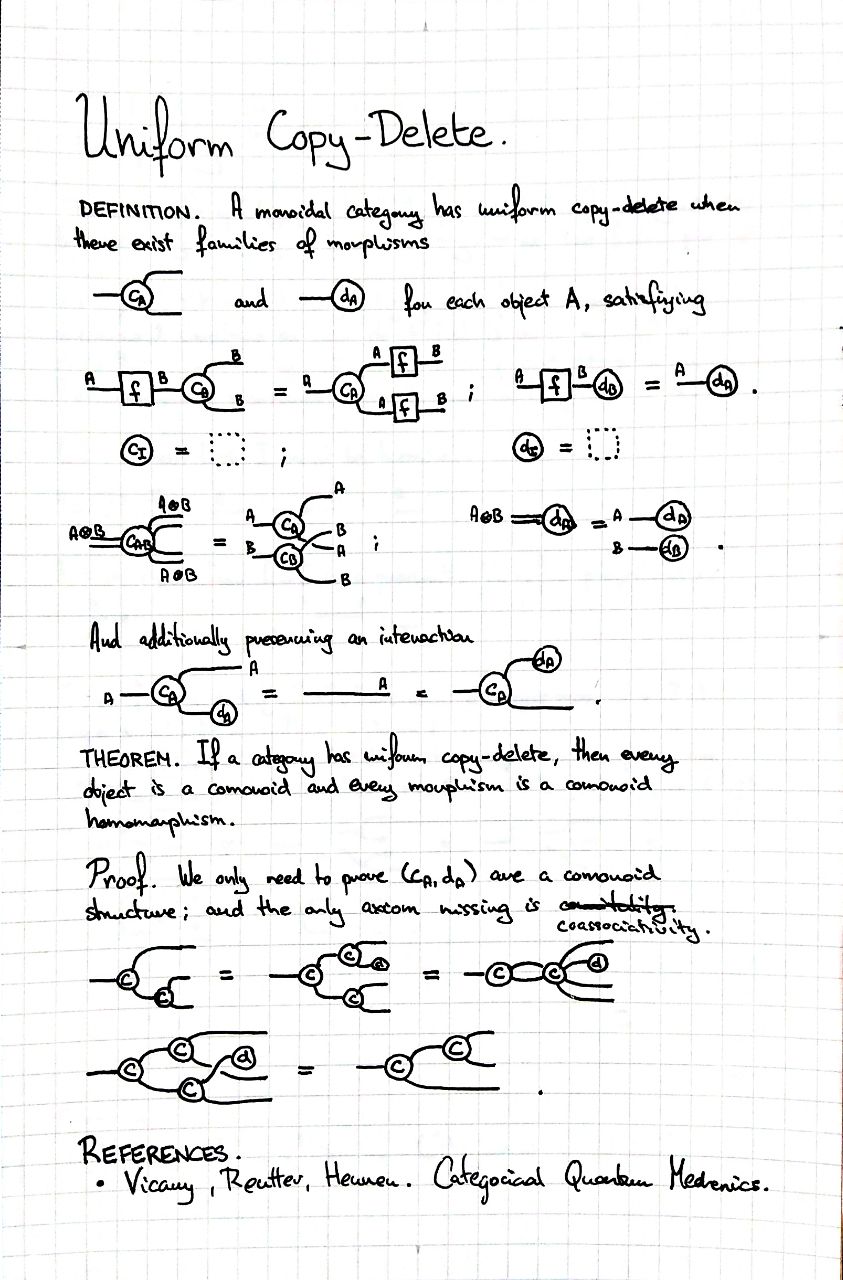 Uniform Copy-Delete.
DEFINITION. A monoidal category has uniform copy-delete when
there exist families of morphisms
C_A and d_A for each object A, satisfiying
A f B C_A B B = A C_A A f B A f B ; A f B d_B = A d_A .
C_I = ; d_I =
A⊗B C_AB A⊗B A⊗B = A C_A A B C_B B A B ; A⊗B d_A = A d_A B d_B .
And additionally preserving an interaction
A C_A A d_A = A = C_A d_A .
THEOREM. If a category has uniform copy-delete, then every
object is a comonoid and every morphism is a comonoid
homomorphism.
Proof. We only need to prove (C_A, d_A) are a comonoid
structure; and the only axiom missing is counitality.
coassociativity.
C C = C C d C = C C d
C C C d = C C .
REFERENCES.
• Vicary, Reutter, Heunen. Categorical Quantum